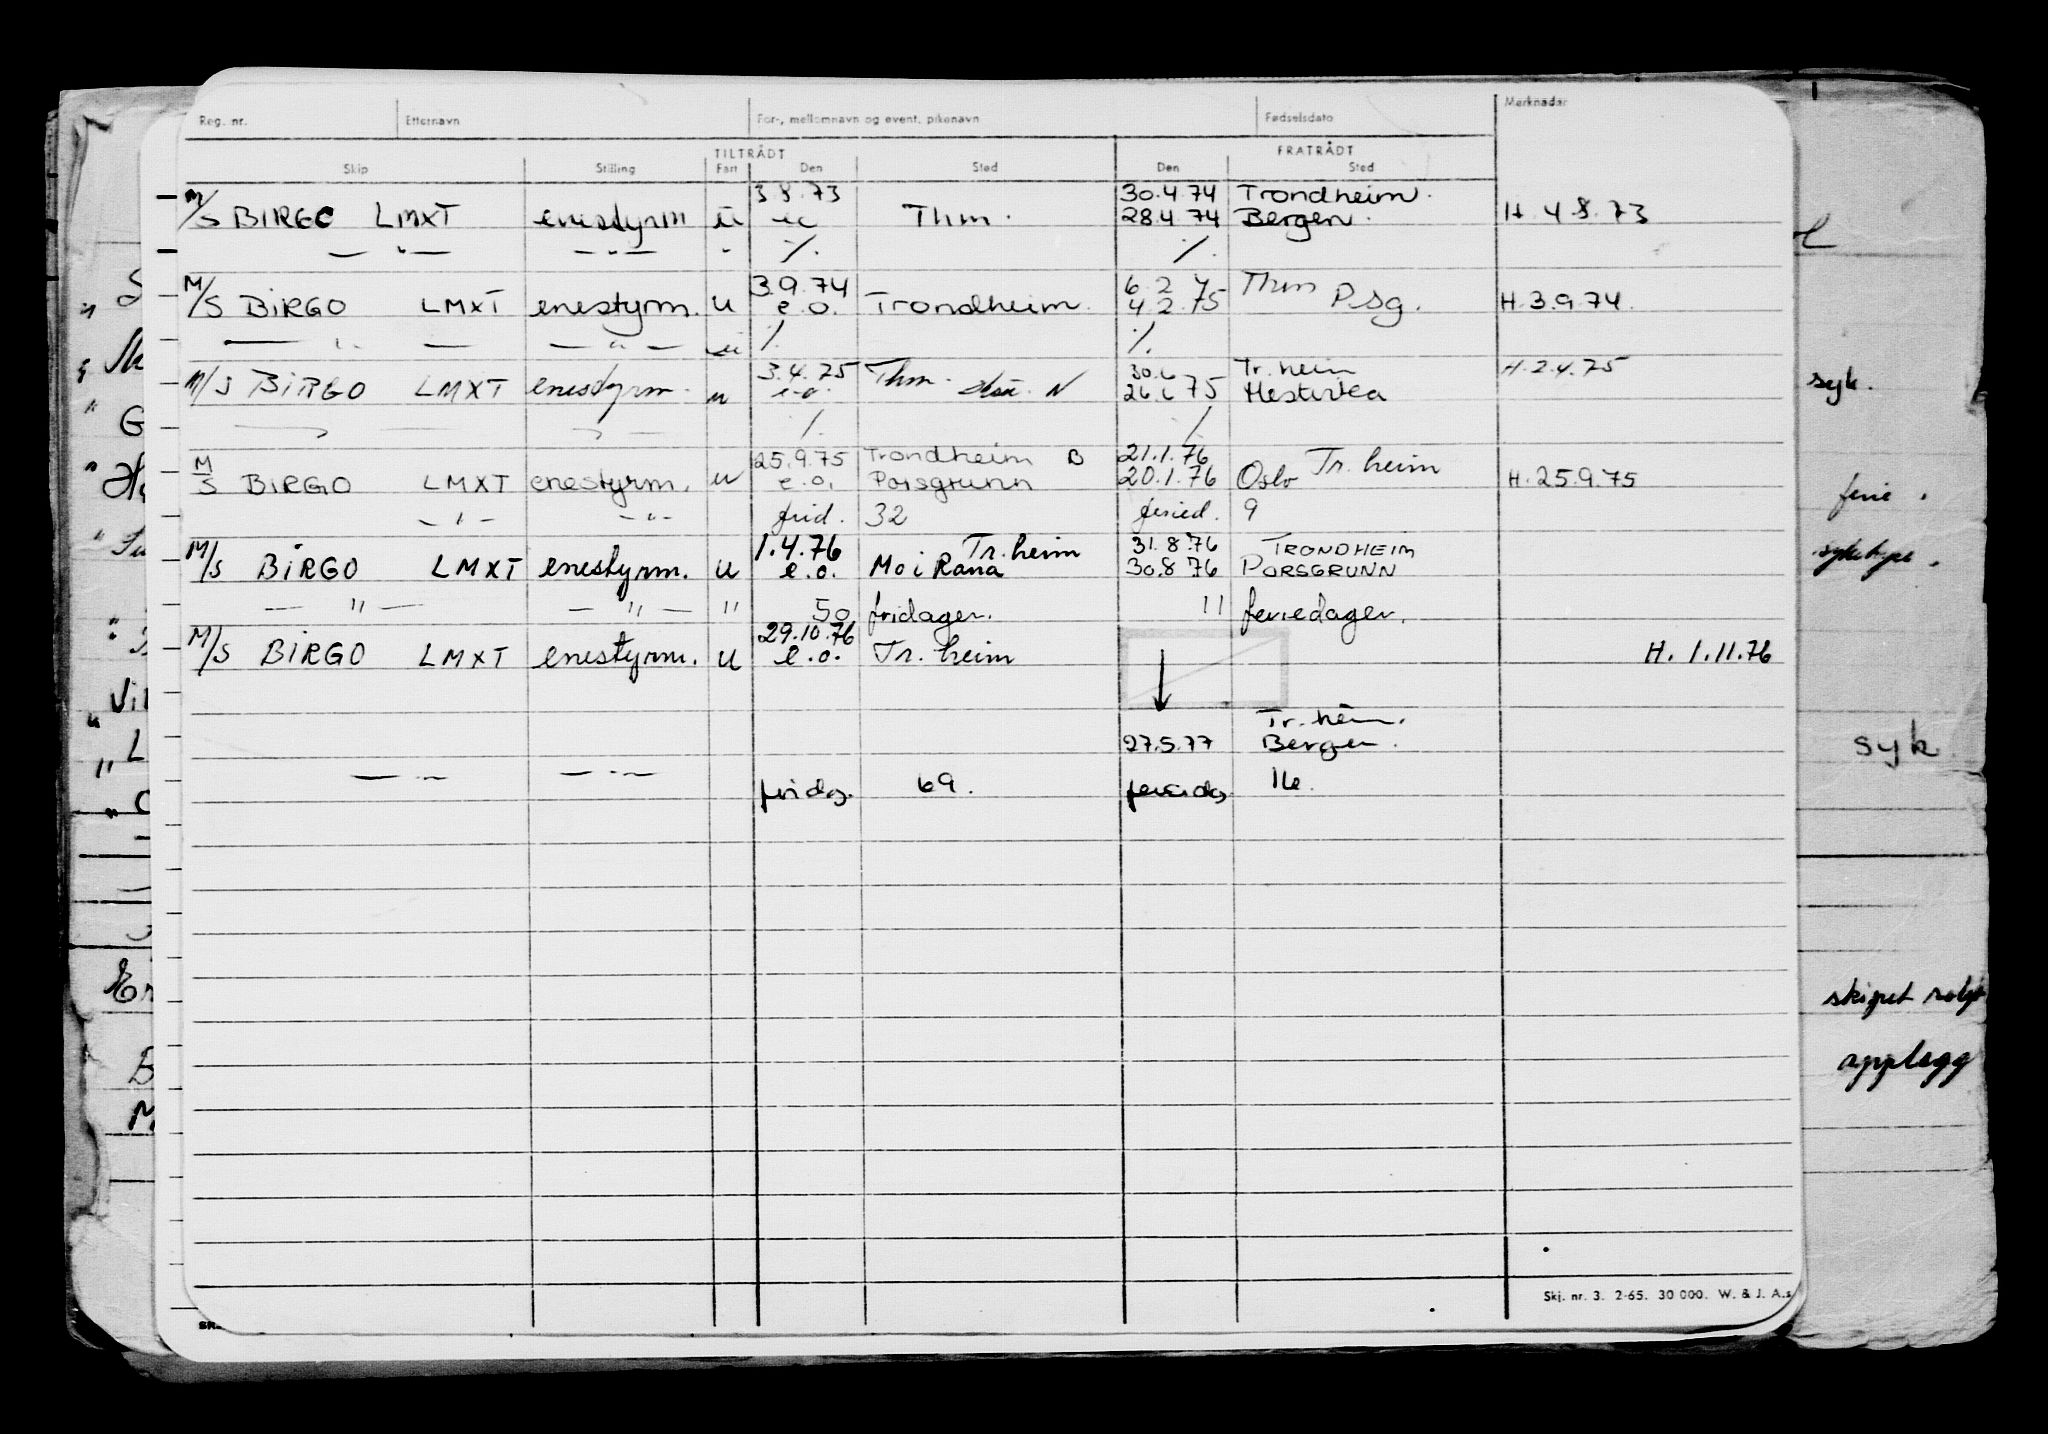 Reg. nr. Etternavn For-, mellomnavn og event. pikenavn Fødselsdato Merknader
TILTRÅDT FRATRÅDT
Skip Stilling Fart Den Sted Den Sted
3.8.73 30.4.74 Trondheim.
M/S BIRGO LMXT enestyrm u Thm. 28.4.74 Bergen. H. 4.8.73
— " — — " — " ./. ./.
3.9.74 6.2 Thm
M/S BIRGO LMXT enestyrm. u e.o. Trondheim. 4.2.75 P.sg. H. 3.9.74.
— " — — " — ./. ./.
3.4.75 Thm. Tr. heim H. 2.4.75
M/S BIRGO LMXT enestyrm. u e.o. N 75 syk.
./. ./.
25.9.75 Trondheim B 21.1.76 Tr. heim
M/S BIRGO LMXT enestyrm. u e.o. Porsgrunn 20.1.76 Oslo H. 25.9.75 ferie.
— " — — " — frid. 32 feried. 9
1.4.76 Tr. heim 31.8.76 TRONDHEIM
M/S BIRGO LMXT enestyrm. u e.o. Mo i Rana 30.8.76 PORSGRUNN
— " — — " — " 50 fridager. 11 feriedager.
29.10.76
M/S BIRGO LMXT enestyrm. u e.o. Tr. heim H. 1.11.76
Tr. heim.
27.5.77 Bergen. syk
— " — — " — fridg. 69. 16
skipet solgt
opplagg
Skj. nr. 3. 2-65. 30 000. W. & J. A.s